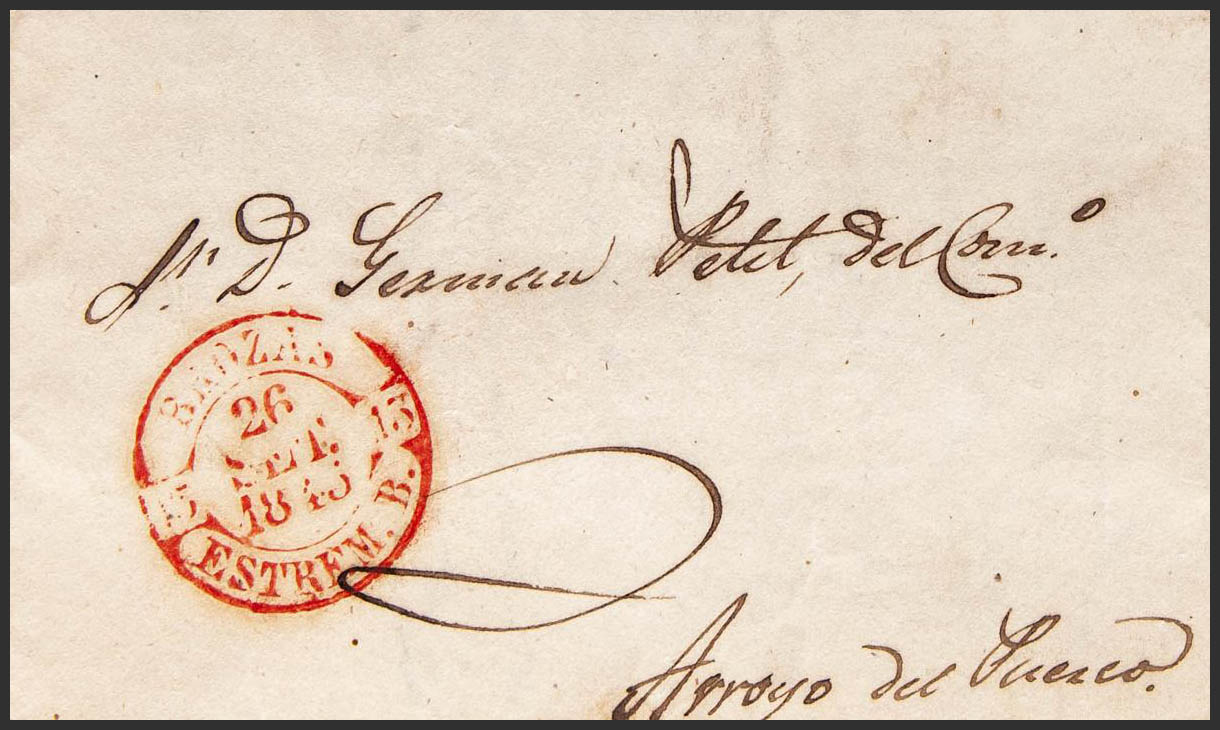 Sr. D. German Petit, del Com.º
BROZAS
26
SET.
1845
15
15
ESTREM. B.
Arroyo del Puerco.